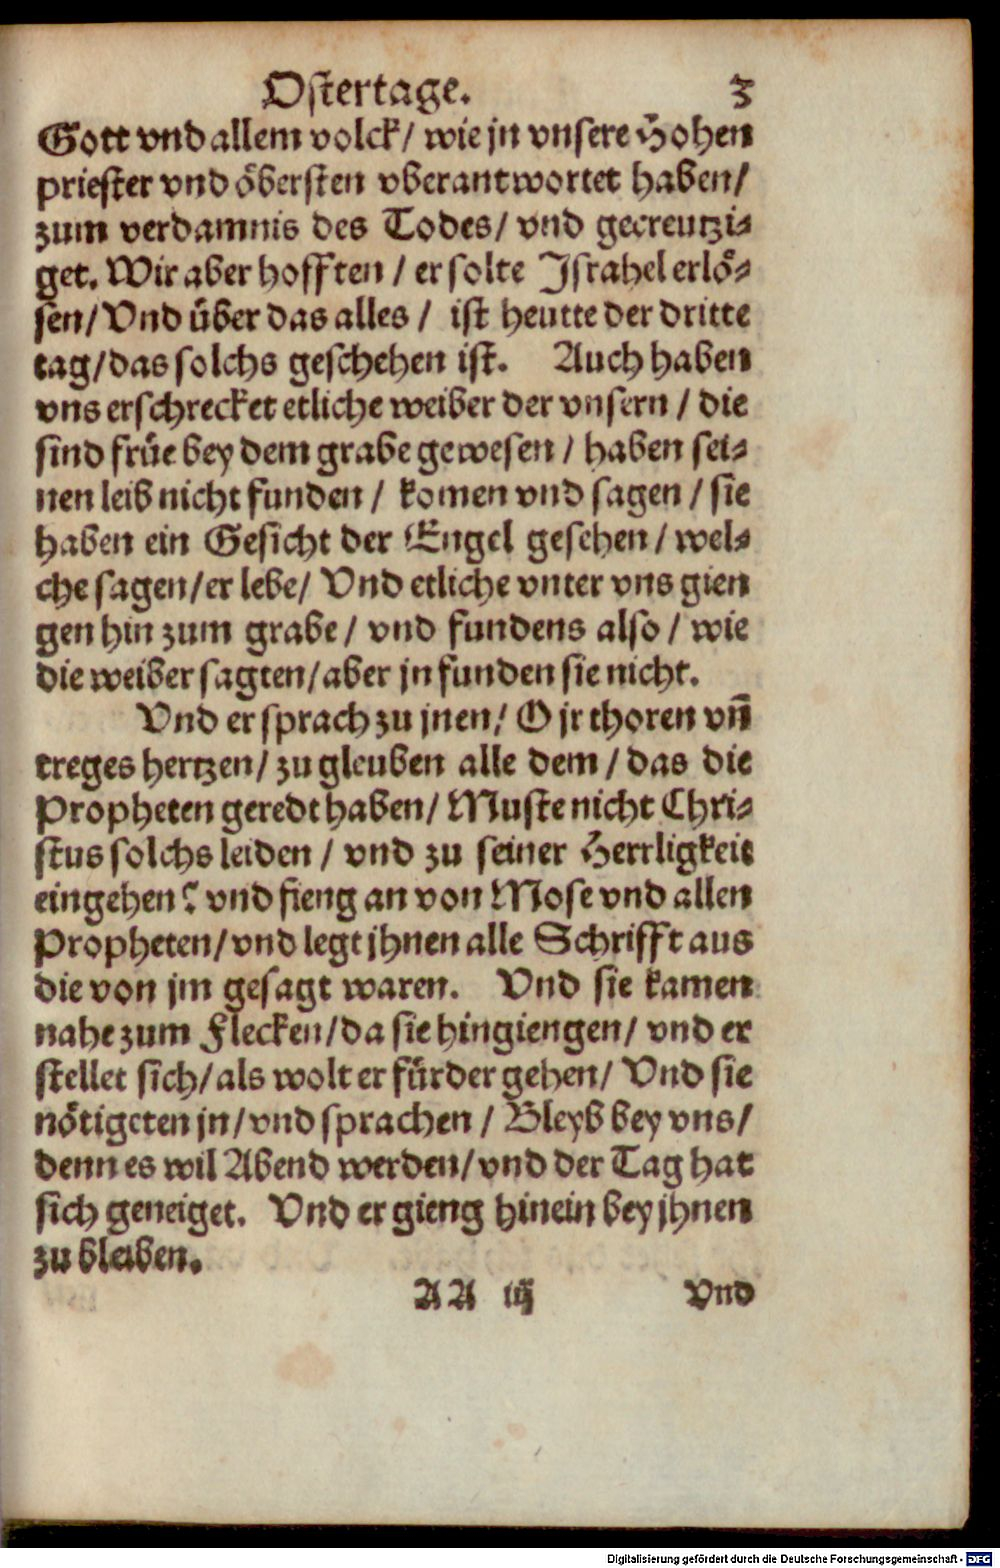 Ostertage. 3
Gott vnd allem volck/ wie jn vnsere Hohen
priester vnd öbersten vberantwortet haben/
zum verdamnis des Todes/ vnd gecreutzi-
get. Wir aber hofften / er solte Israhel erlö-
sen/ Vnd über das alles / ist heutte der dritte
tag/ das solchs geschehen ist. Auch haben
vns erschrecket etliche weiber der vnsern / die
sind früe bey dem grabe gewesen / haben sei-
nen leib nicht funden / komen vnd sagen / sie
haben ein Gesicht der Engel gesehen / wel-
che sagen/ er lebe/ Vnd etliche vnter vns gien
gen hin zum grabe / vnd fundens also / wie
die weiber sagten/ aber jn funden sie nicht.
Vnd er sprach zu jnen/ O jr thoren vñ
treges hertzen/ zu gleuben alle dem / das die
Propheten geredt haben/ Muste nicht Chri-
stus solchs leiden / vnd zu seiner Herrligkeit
eingehen? vnd fieng an von Mose vnd allen
Propheten/ vnd legt jhnen alle Schrifft aus
die von jm gesagt waren. Vnd sie kamen
nahe zum Flecken/ da sie hingiengen/ vnd er
stellet sich/ als wolt er fürder gehen/ Vnd sie
nötigeten jn/ vnd sprachen / Bleyb bey vns/
denn es wil Abend werden/ vnd der Tag hat
sich geneiget. Vnd er gieng hinein bey jhnen
zu bleiben.
AA iij Vnd
Digitalisierung gefördert durch die Deutsche Forschungsgemeinschaft - DFG